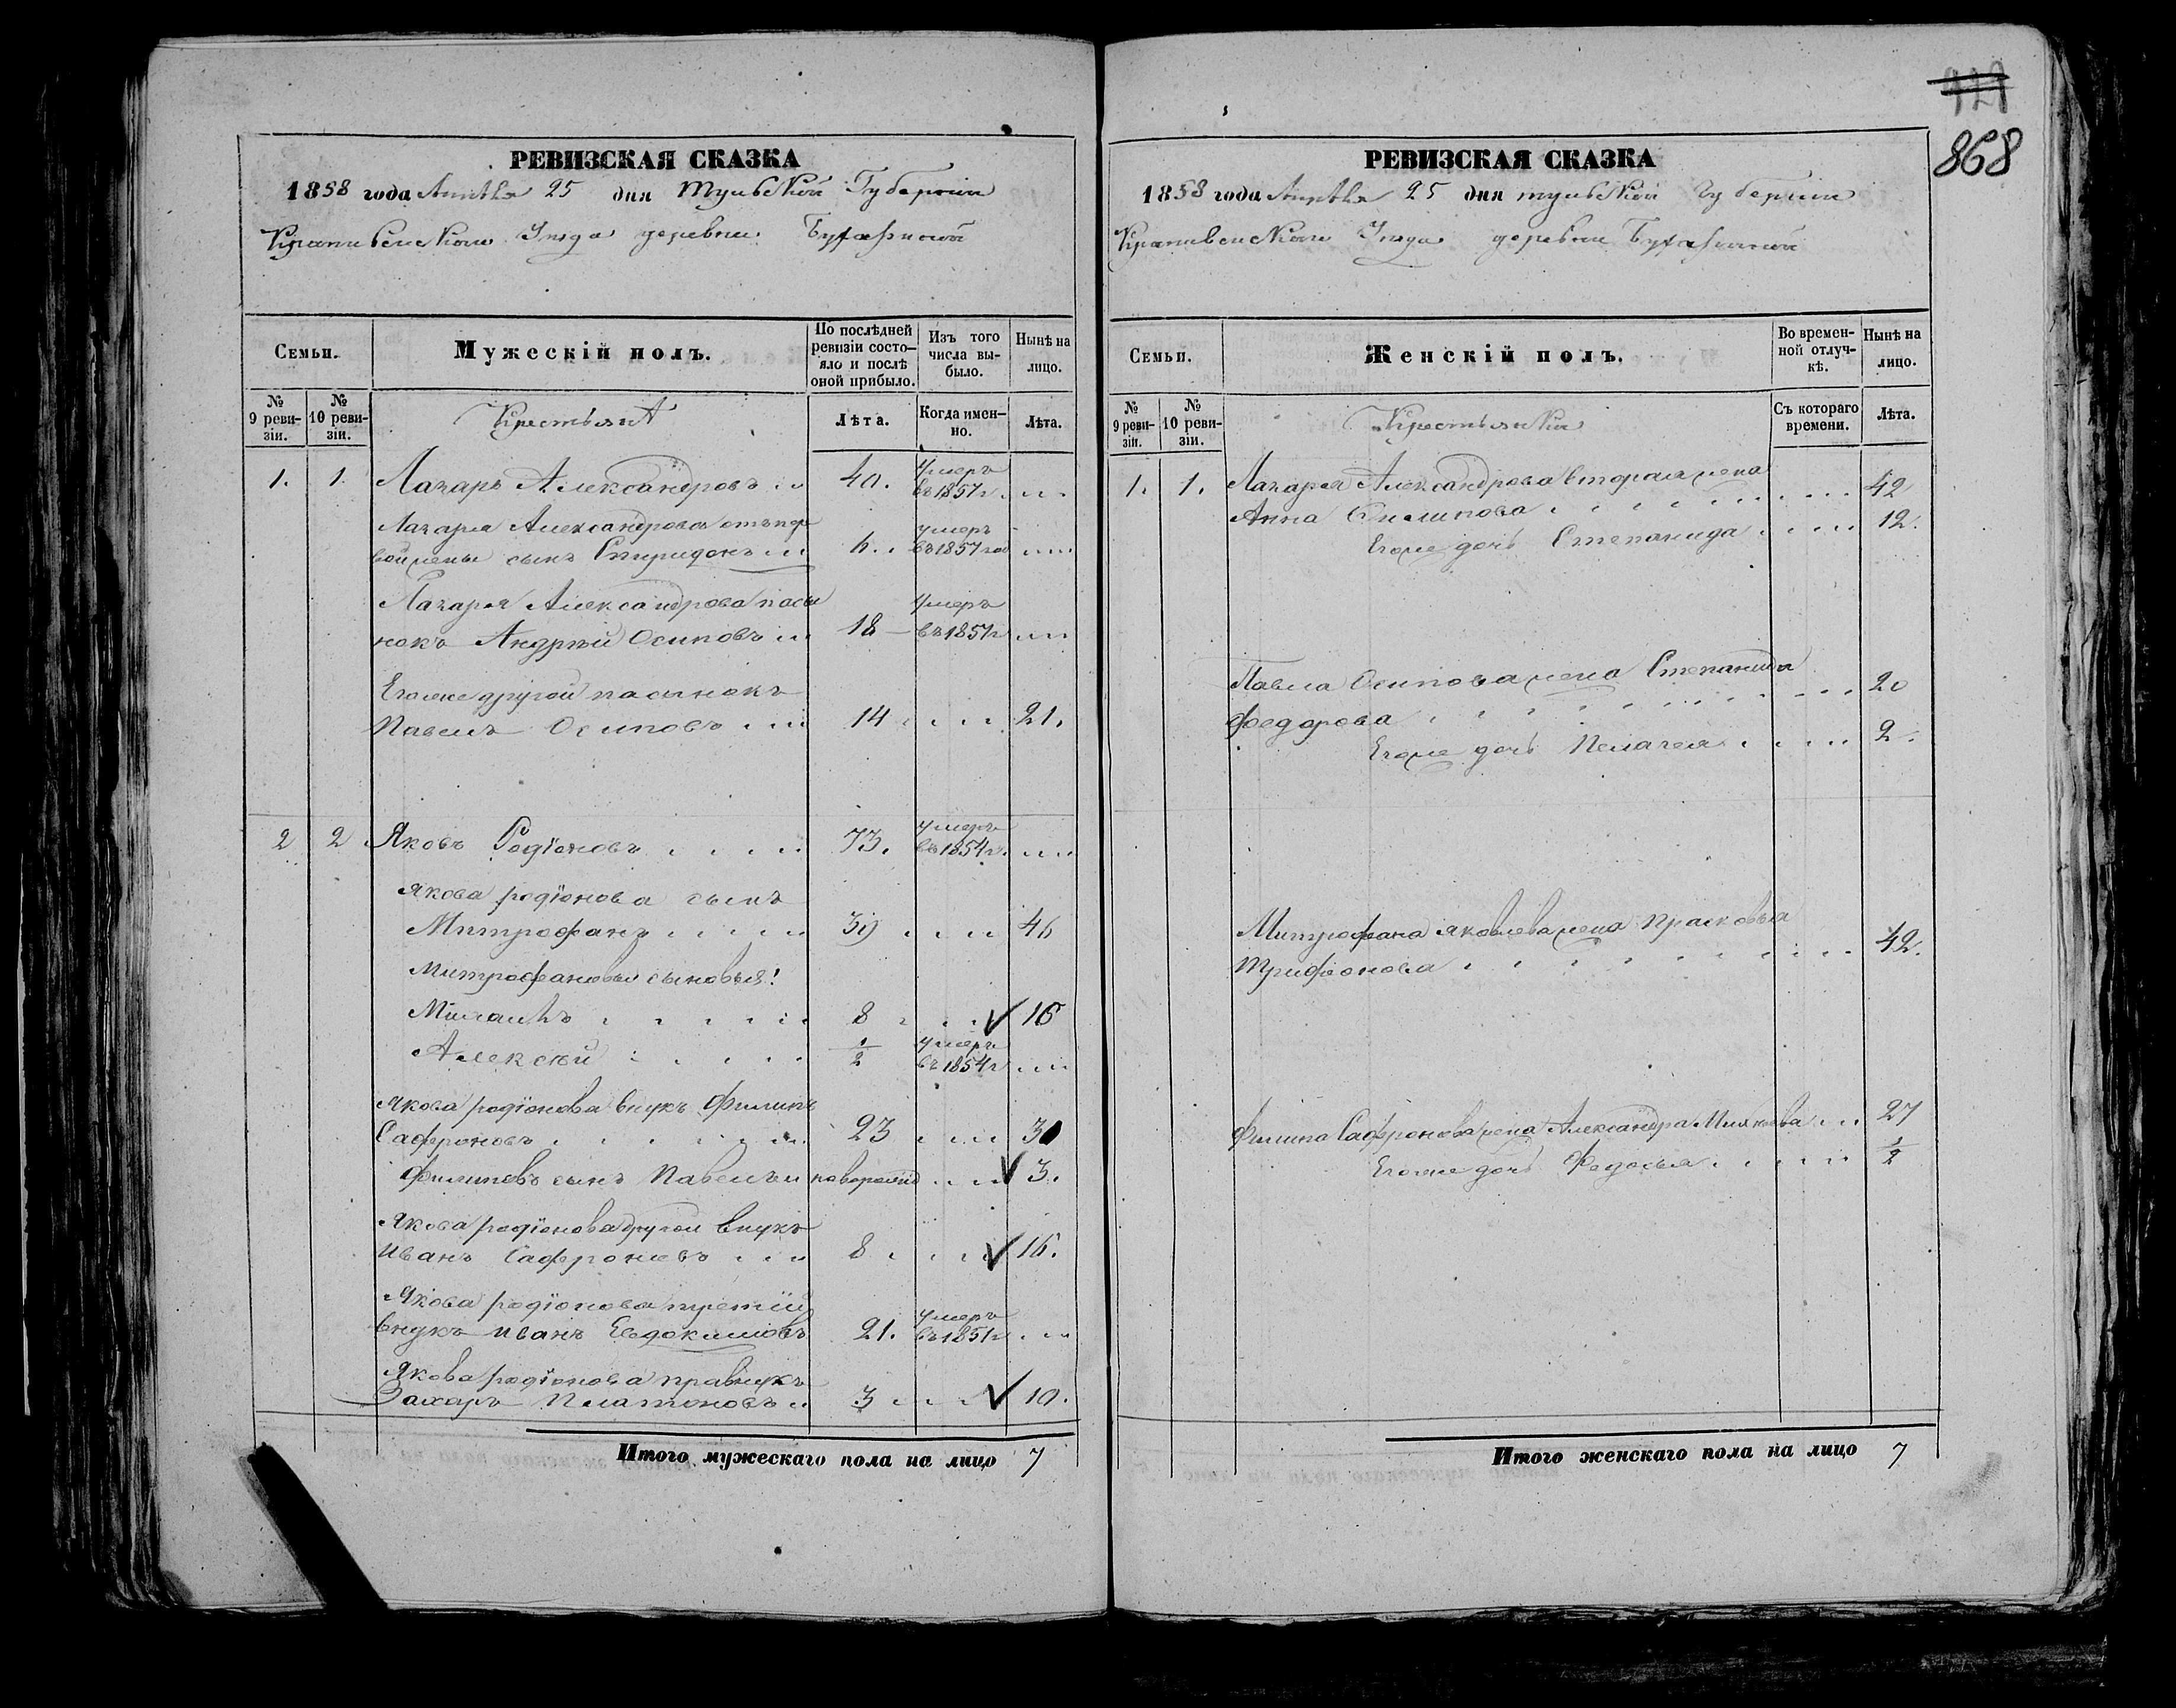 РЕВИЗСКАЯ СКАЗКА
1858 года Апреля 25 дня Тульской Губернии
Крапивенскаго Уезда деревни
Семьи.
Мужескій полъ.
По послѣдней ревизіи состо-
яло и послѣ оной прибыло.
Изъ того числа вы-
было.
Нынѣ на лицо.
№ 9 реви-
зіи.
№ 10 реви-
зіи.
Крестьянѣ
Лѣта.
Когда имен-
но.
Лѣта.
1. 1. Лазарь Александровъ 40. умеръ въ 1857 г.
Лазаря Александрова отъ пер
вой жены сынъ Спиридонъ 6. умеръ въ 1857 год
Лазаря Александрова пасы
нокъ Андрѣй Осиповъ 18 умеръ въ 1857 г
Егоже другой пасынокъ
Павелъ Осиповъ 14 21.
2 2 Яковъ Родіоновъ 73. умеръ въ 1854 г.
Якова родіонова сынъ
Митрофанъ 39 46
Митрофановы сыновья:
Михаилъ 8 15
Алексѣй 1/2 умеръ въ 1854 г
Якова родіонова внукъ Филипъ
Сафроновъ 23 30
Филиповъ сынъ Павелъ новорожд 3.
Якова родіонова другой внукъ
Иванъ Сафроновъ 8 15.
Якова родіонова третій
внукъ Иванъ Евдокимовъ 21. умеръ въ 1851 г
Якова родіонова правнукъ
Захаръ Платоновъ 3 10.
Итого мужескаго пола на лицо 7
868
РЕВИЗСКАЯ СКАЗКА
1858 года Апреля 25 дня тульской губернии
Крапивенскаго Уезда деревни
Семьи.
Женскій полъ.
Во времен-
ной отлуч-
кѣ.
Нынѣ на лицо.
№ 9 реви-
зіи.
№ 10 реви-
зіи.
Крестьянки
Съ котораго времени.
Лѣта.
1. 1. Лазаря Александрова вторая жена
Анна Филипова 42
Егоже дочь Степанида 12.
Павла Осипова жена Степанида
Федорова 20
Егоже дочь Пелагея 2.
Митрофана яковлева жена Прасковья
Трифонова 42.
Филипа Сафронова жена Александра 27
Егоже дочь Федосья 1/2
Итого женскаго пола на лицо 7